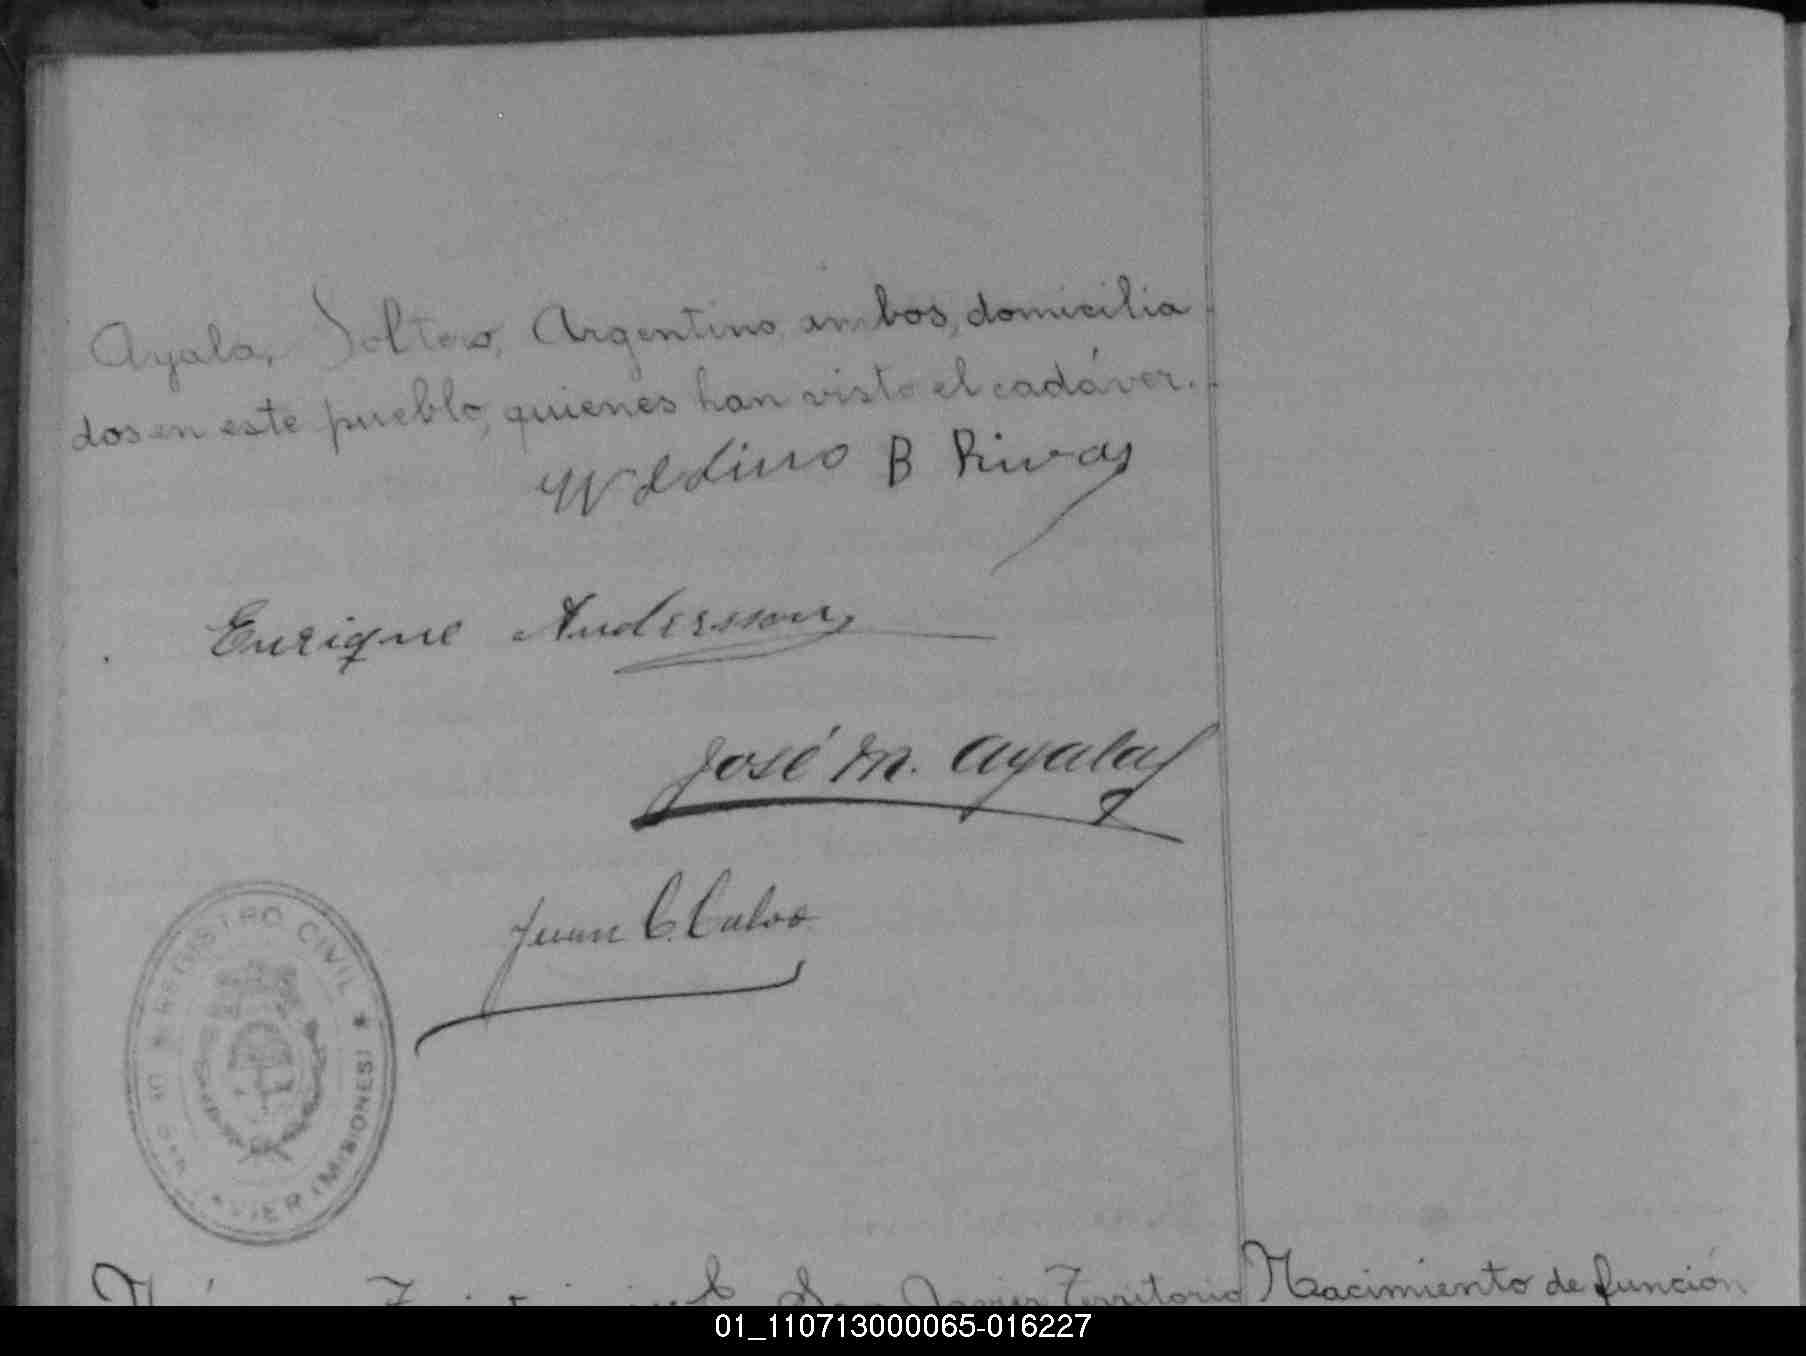 Ayala, Soltero, Argentino ambos, domicilia
dos en este pueblo, quienes han visto el cadáver.
B Rivas
Enrique Andersson
José M. Ayala
Juan C. Calvo
REGISTRO CIVIL
JAVIER (MISIONES)
Javier Territorio
Nacimiento de función
01_110713000065-016227